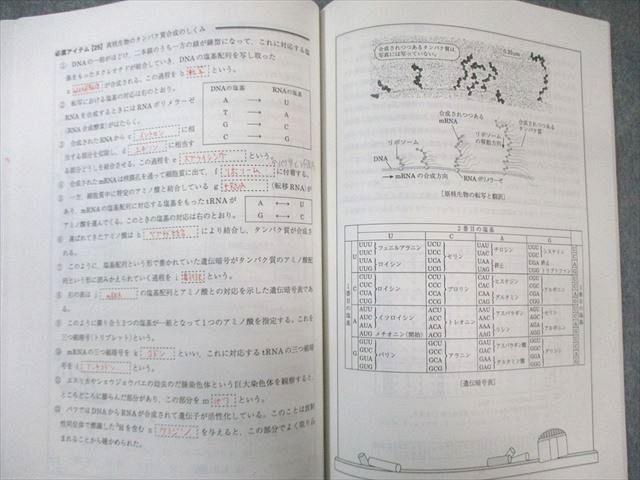 必須アイテム【25】 真核生物のタンパク質合成のしくみ
① DNAの一部がほどけ,二本鎖のうち一方の鎖が鋳型になって,これに対応する塩
基をもったヌクレオチドが結合していき,DNAの塩基配列を写し取った
a が合成される。この過程を b 転写 という。
② 転写における塩基の対応は右のとおり。
RNAを合成するときにはRNAポリメラーゼ
(RNA合成酵素)がはたらく。
DNAの塩基 RNAの塩基
A → U
T → A
G → C
C → G
③ 合成されたRNAから c イントロン に相
当する部分を切除し, d エキソン に相当
する部分どうしを結合させる。この過程を e スプライシング という。
④ 合成されたmRNAは核膜孔を通って細胞質に出て, f リボソーム に付着する。
⑤ 一方,細胞質中に特定のアミノ酸と結合している g tRNA (転移RNA)が
あり,mRNAの塩基配列に対応する塩基をもったtRNAが
アミノ酸を運んでくる。このときの塩基の対応は右のとおり。
A ↔ U
G ↔ C
⑥ 運ばれてきたアミノ酸は h ペプチド結合 により結合し,タンパク質が合成さ
⑦ このように,塩基配列という形で書かれていた遺伝暗号がタンパク質のアミノ酸配
列という形に読みかえられていく過程を i 翻訳 という。
⑧ 右の表は j mRNA の塩基配列とアミノ酸との対応を示した遺伝暗号表であ
る。
⑨ このように隣り合う3つの塩基が一組となって1つのアミノ酸を指定する。これを
三つ組暗号(トリプレット)という。
⑩ mRNAの三つ組暗号を k コドン といい,これに対応するtRNAの三つ組暗
号を l アンチコドン という。
⑪ ユスリカやショウジョウバエの幼虫のだ腺染色体という巨大染色体を観察すると,
ところどころに膨らんだ部分があり,この部分を m パフ という。
⑫ パフではDNAからRNAが合成されて遺伝子が活性化している。このことは放射
性同位体で標識した³Hを含む n ウリジン を与えると,この部分でよく取り込
まれることから確かめられた。
合成されつつあるタンパク質は
写真には写っていない。
0.25μm
合成されつつある
mRNA
リボソーム
リボソーム
の移動方向
合成されつつある
タンパク質
DNA
mRNAの合成方向
RNAポリメラーゼ
[原核生物の転写と翻訳]
2番目の塩基
U C A G
1番目の塩基
3番目の塩基
U
UUU UUC フェニルアラニン
UUA UUG ロイシン
UCU UCC UCA UCG セリン
UAU UAC チロシン
UAA UAG 終止
UGU UGC システイン
UGA 終止
UGG トリプトファン
C
CUU CUC CUA CUG ロイシン
CCU CCC CCA CCG プロリン
CAU CAC ヒスチジン
CAA CAG グルタミン
CGU CGC CGA CGG アルギニン
A
AUU AUC AUA イソロイシン
AUG メチオニン(開始)
ACU ACC ACA ACG トレオニン
AAU AAC アスパラギン
AAA AAG リシン
AGU AGC セリン
AGA AGG アルギニン
G
GUU GUC GUA GUG バリン
GCU GCC GCA GCG アラニン
GAU GAC アスパラギン酸
GAA GAG グルタミン酸
GGU GGC GGA GGG グリシン
[遺伝暗号表]